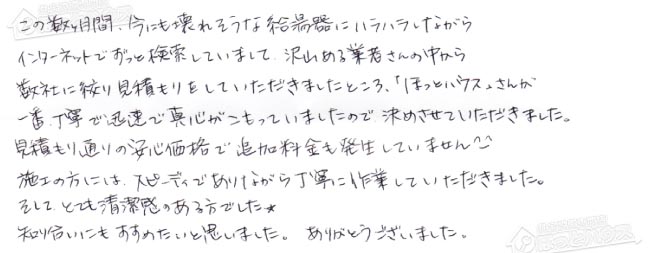 この数ヶ月間、今にも壊れそうな給湯器にハラハラしながら
インターネットでずっと検索していまして、沢山ある業者さんの中から
数社に絞り見積もりをしていただきましたところ、「ほっとハウス」さんが
一番丁寧で迅速で真心がこもっていましたので決めさせていただきました。
見積もり通りの安心価格で追加料金も発生していません^^
施工の方には、スピーディでありながら丁寧に作業していただきました。
そして、とても清潔感のある方でした★
知り合いにもすすめたいと思いました。ありがとうございました。